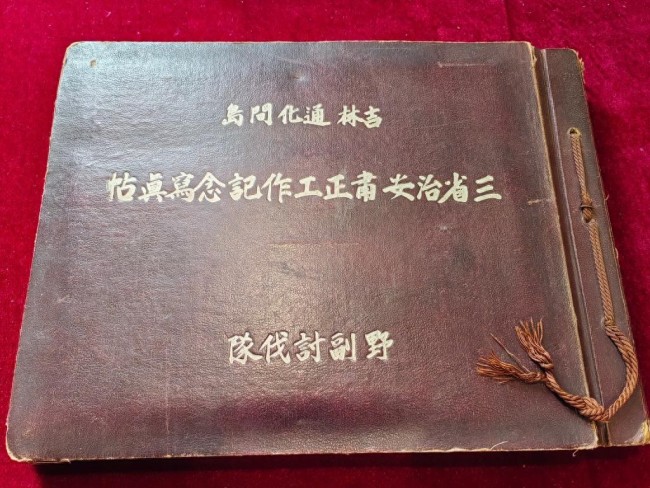 吉林 通化 間島
三省治安肅正工作記念寫眞帖
野副討伐隊